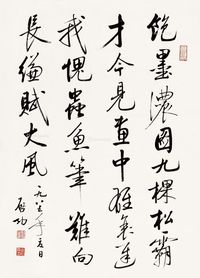 飽墨濃圖九棵松霸
才今見畫中雄衰遲
我愧蟲魚筆難向
長縑賦大風
一九八年夏日
啟功